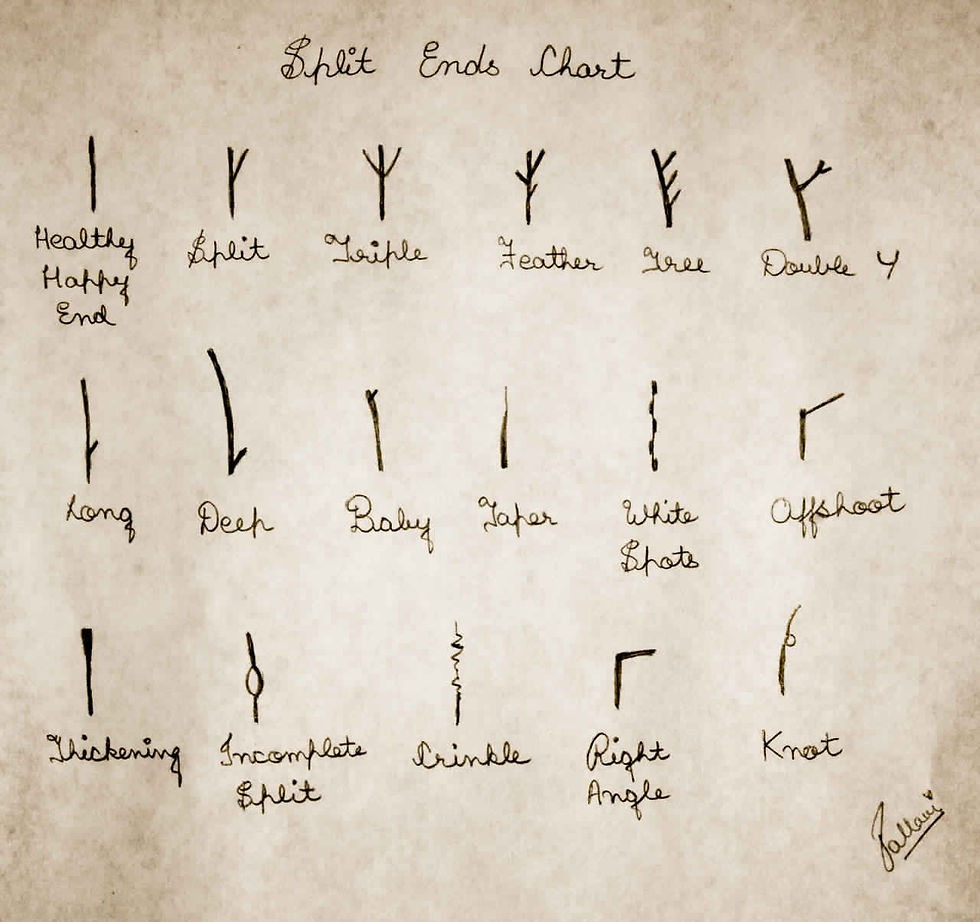 Split Ends Chart
Healthy Split Triple Feather Tree Double Y
Happy
End
Long Deep Baby Taper White Offshoot
Spots
Thickening Incomplete Crinkle Right Knot
Split Angle
Pallavi